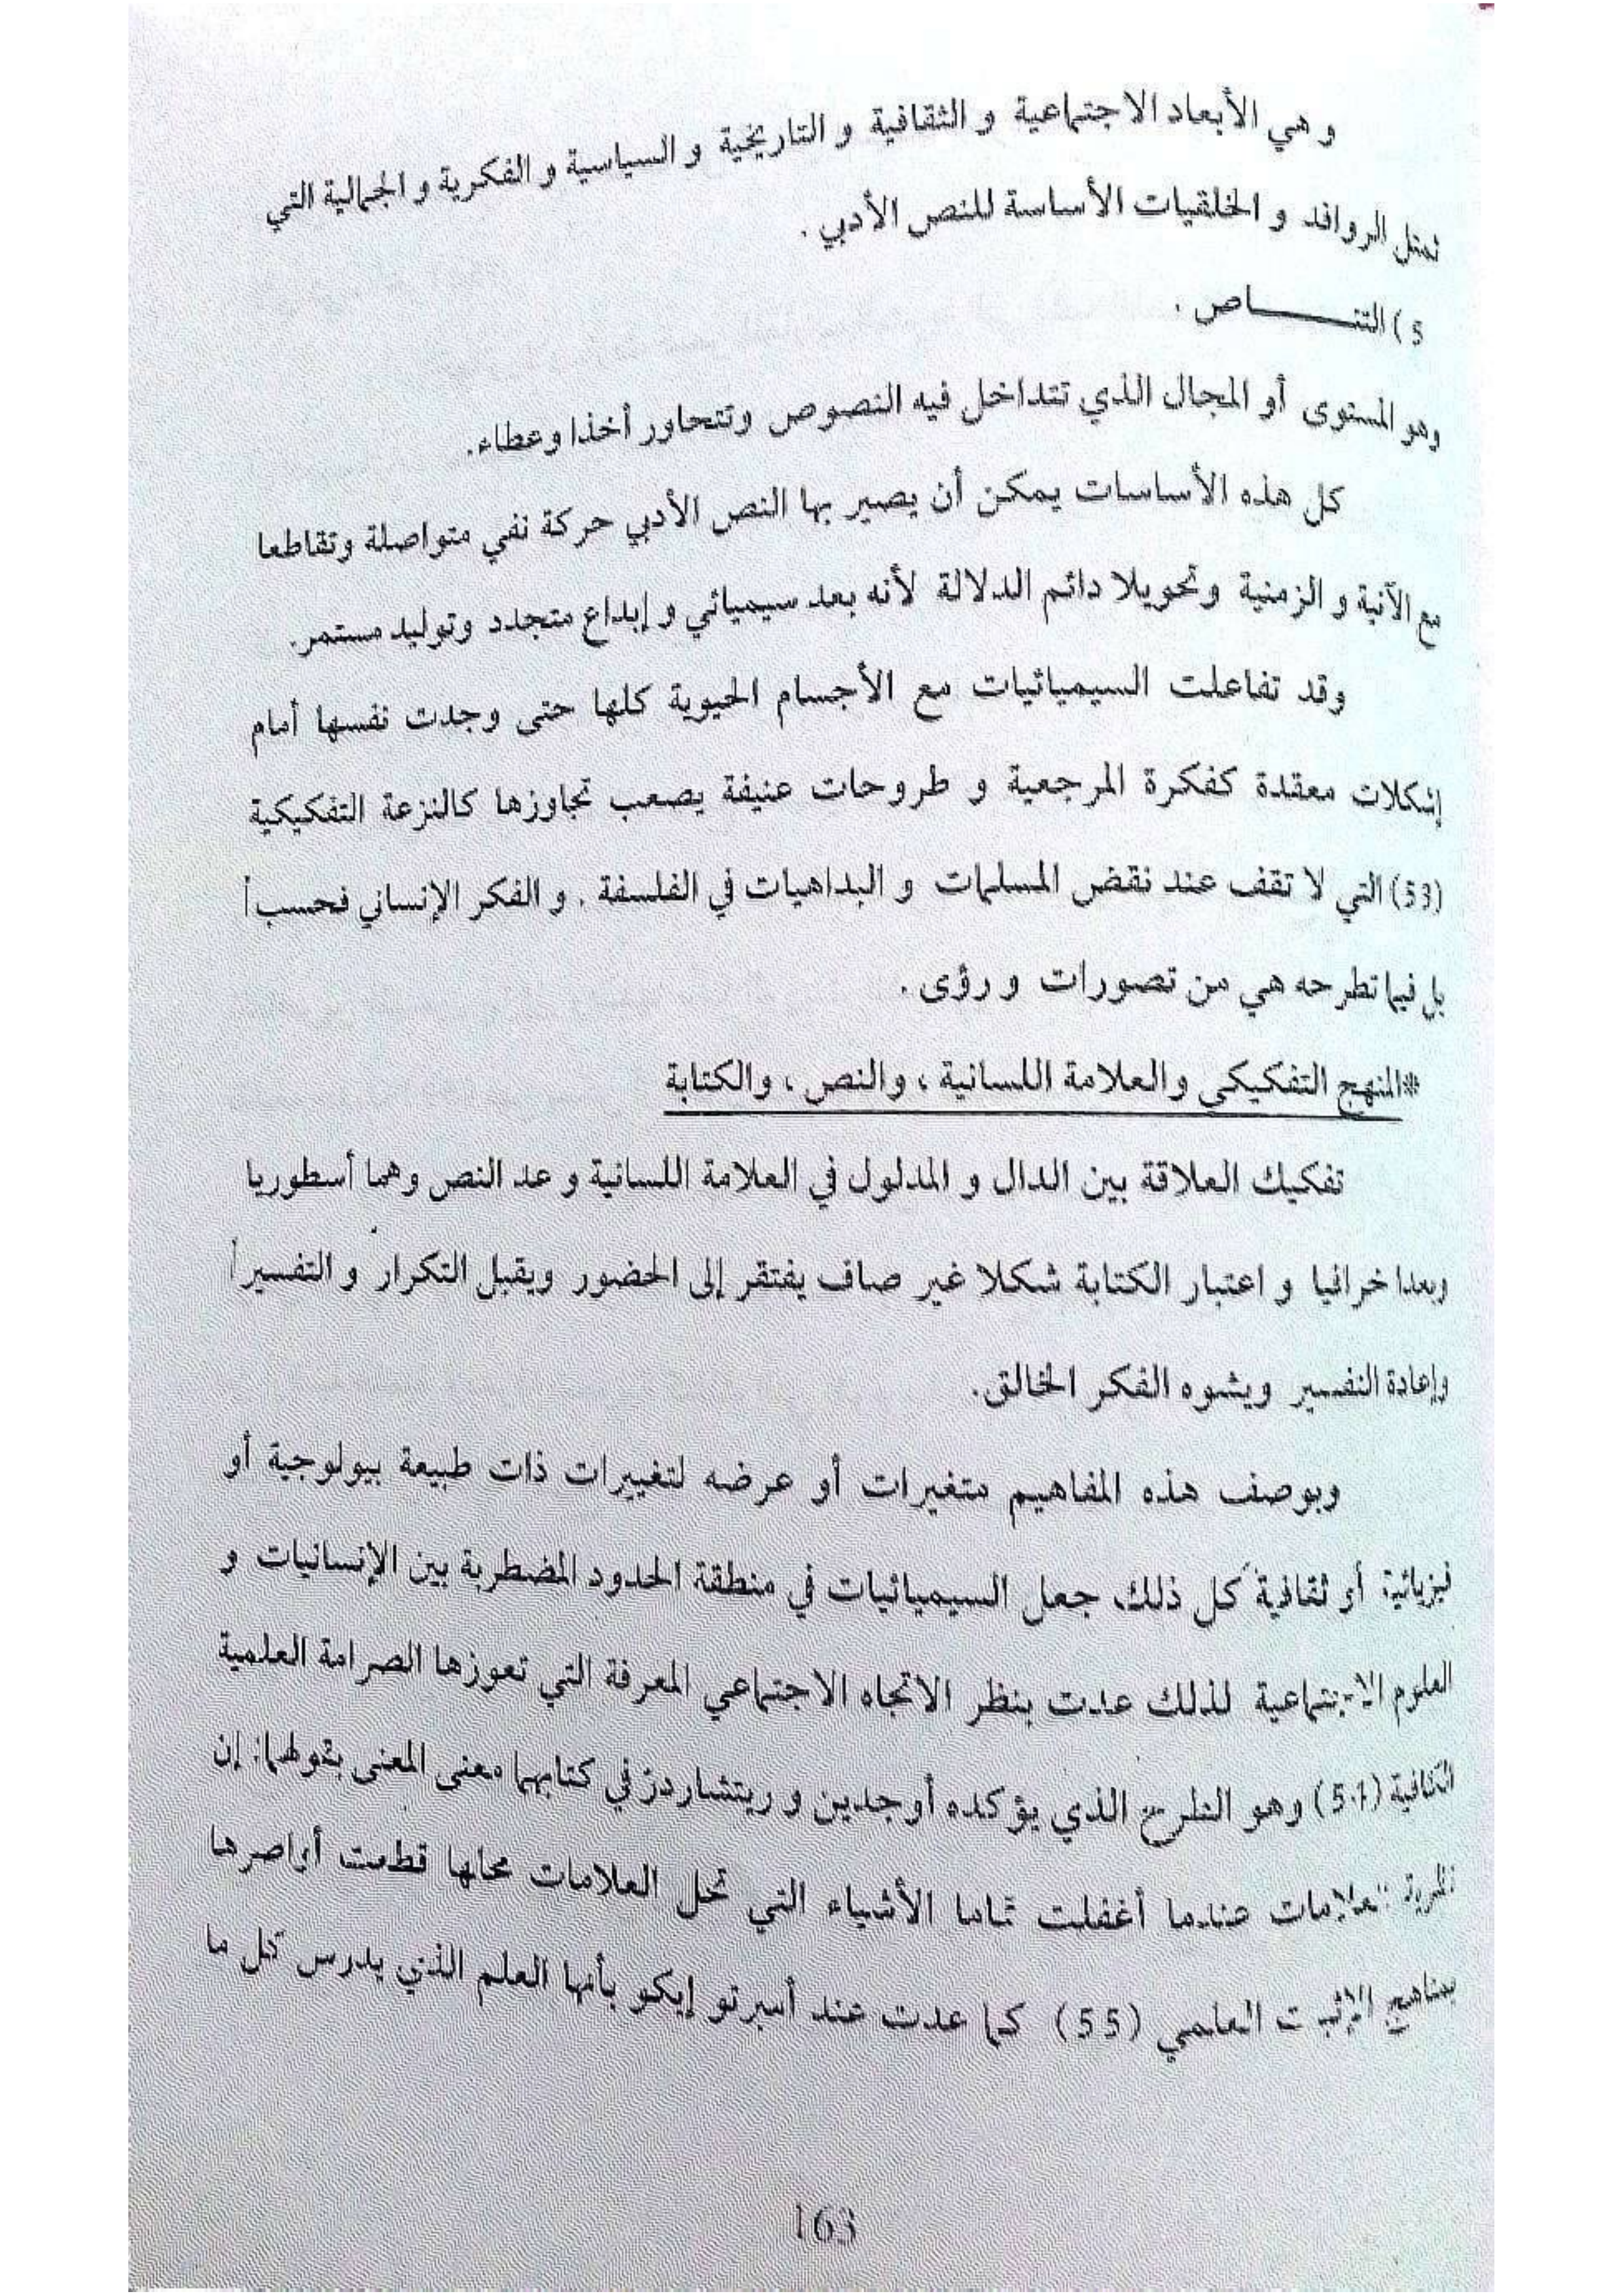 و هي الأبعاد الاجتماعية و الثقافية و التاريخية و السياسية و الفكرية و الجمالية التي
تمثل الروافد و الخلقيات الأساسة للنص الأدبي .
5) التنـــــاص .
وهو المستوى أو المجال الذي تتداخل فيه النصوص وتتحاور أخذا وعطاء.
كل هذه الأساسات يمكن أن يصير بها النص الأدبي حركة نفي متواصلة وتقاطعا
مع الآنية و الزمنية وتحويلا دائم الدلالة لأنه بعد سيميائي و إبداع متجدد وتوليد مستمر.
وقد تفاعلت السيميائيات مع الأجسام الحيوية كلها حتى وجدت نفسها أمام
إشكلات معقدة كفكرة المرجعية و طروحات عنيفة يصعب تجاوزها كالنزعة التفكيكية
(53) التي لا تقف عند نقض المسلمات و البداهيات في الفلسفة . و الفكر الإنساني فحسب
بل فيما تطرحه هي من تصورات و رؤى .
*المنهج التفكيكي والعلامة اللسانية ، والنص ، والكتابة
تفكيك العلاقة بين الدال و المدلول في العلامة اللسانية و عد النص وهما أسطوريا
وبعدا خرافيا و اعتبار الكتابة شكلا غير صاف يفتقر إلى الحضور ويقبل التكرار و التفسير
وإعادة التفسير ويشوه الفكر الخالق.
وبوصف هذه المفاهيم متغيرات أو عرضه لتغييرات ذات طبيعة بيولوجية أو
فيزيائية أو ثقافية كل ذلك، جعل السيميائيات في منطقة الحدود المضطربة بين الإنسانيات و
العلوم الاجتماعية لذلك عدت بنظر الاتجاه الاجتماعي المعرفة التي تعوزها الصرامة العلمية
الكافية (54) وهو الطرح الذي يؤكده أوجدين و ريتشاردز في كتابهما معنى المعنى بقولهما: إن
نظرية العلامات عندما أغفلت تماما الأشياء التي تحل العلامات محلها قطعت أواصرها
بمناهج الإثبات العلمي (55) كما عدت عند أمبرتو إيكو بأنها العلم الذي يدرس كل ما
163